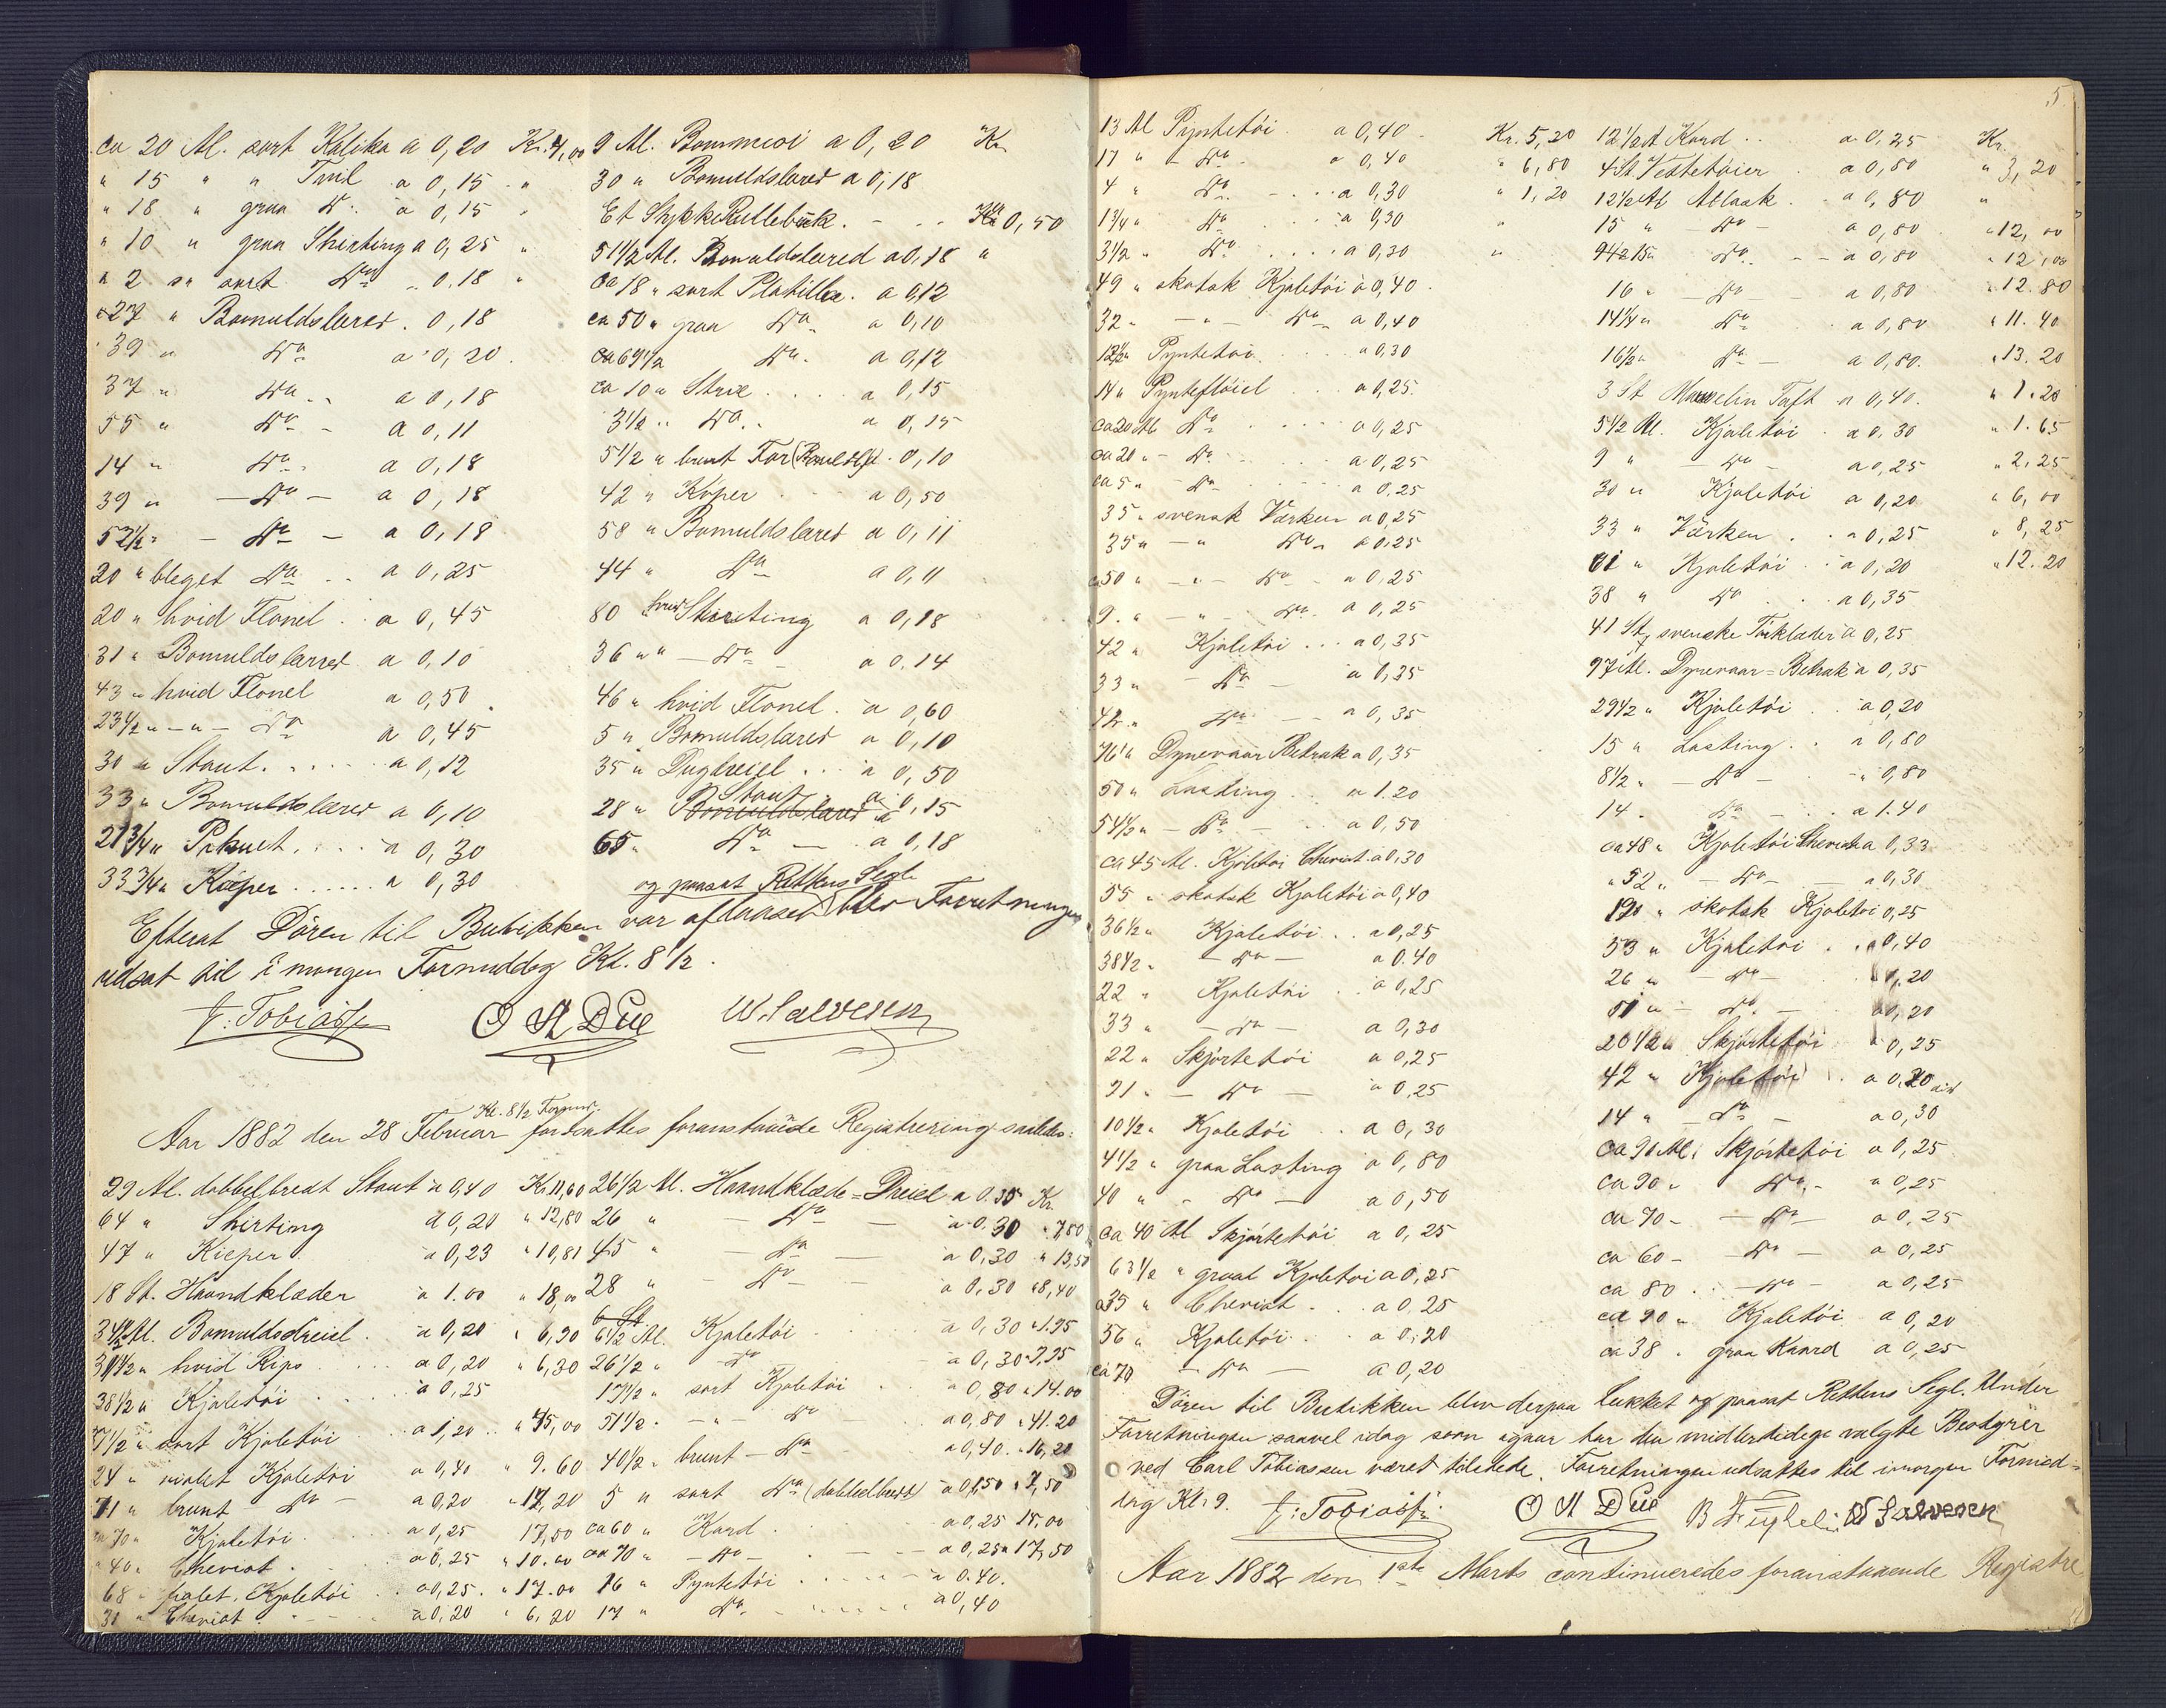 ca 20 Al. sort Kalika a 0,20 Kr. 4,00
" 15 " " Tvil a 0,15 "
" 18 " graa Do a 0,15 "
" 10 " graa Shirting a 0,25 "
" 2 " sort Do 0,18 "
" 27 " Bomuldslæred . 0,18
39 " Do a 0,20
37 " Do a 0,18
55 " Do a 0,11
14 " Do a 0,18
39 " Do a 0,18
52 1/2 " Do a 0,18
20 " bleget Do a 0,25
20 " hvid Flonel a 0,45
31 " Bomuldslærred a 0,10
43 " hvid Flonel a 0,50
23 1/2 " - " - Do a 0,45
30 " Staut a 0,12
33 " Bomuldslæred a 0,10
21 3/4 " a 0,30
33 3/4 " Kieper a 0,30
9 Al. Bommesi a 0,20 Kr.
30 " Bomuldslæred a 0,18
Et Stykke Rullebuk Kr 0,50
51 1/2 Al. Bomuldslæred a 0,18 "
Ca 18 " sort Platilla a 0,12
ca 50 " graa Do a 0,10
ca 69 1/2 Do a 0,12
ca 10 " Strie a 0,15
3 1/2 " Do a 0,15
5 1/2 " brunt For 0,10
42 " Kóper a 0,50
58 " Bomuldslæred a 0,11
44 " Do a 0,11
80 hvid Shirting a 0,18
36 " " - Do - a 0,14
46 " hvid Flonel a 0,60
5 " Bomuldslæred a 0,10
35 " Dugdreiel a 0,50
28 " Staut a 0,15
65 " Do a 0,18
og paasat Rettens Segl
Efterat Dören til Butikken var aflaaset blev Forretningen
udsat til i morgen Formiddag Kl. 8 1/2.
F. Tobiassen O A Due W. Salvesen
Kl. 8 1/2 Formd.
Aar 1882 den 28 Februar fortsattes foranstaaende Registrering saaledes:
29 Al. dobbelbredt Staut a 0,40 Kr. 11,60
64 " Shirting a 0,20 " 12,80
47 " Kieper a 0,23 " 10,81
18 St. Haandklæder a 1.00 " 18,00
34 1/2 Al. Bomuldsdreiel a 0,20 " 6,90
31 1/2 " hvid Rips a 0,20 " 6,30
38 1/2 " Kjoletöi a 0,25
" sort Kjoletöi a 1,20 "
24 " violet Kjoletöi a 0,40 " 9.60
71 " brunt - Do a 0,20 " 14,20
ca 70 " Kjoletöi a 0,25 17,50
" 40 " Cheviot a 0,25 " 10.00
68 " Kjoletöi a 0,25 " 17.00
31 " Cheviot a 0,20 " 6,20
26 1/2 Al. Haandklæde=Dreiel a 0.35 Kr.
26 " - Do - a 0.30 " 7,80
45 " - Do - a 0,30 " 13,50
28 " - Do - a 0,30 " 8,40
6 St
6 1/2 Al. Kjoletöi a 0,30 " 1.95
26 1/2 " - Do a 0,30 " 7,95
17 1/2 " sort Kjoletöi a 0,80 " 14.00
51 1/2 " - " - Do a 0,80 " 41.20
40 1/2 " brunt - Do a 0,40 " 16,20
5 " sort Do (dobbelbredt) a 1,50 " 7,50
ca 60 " Kard a 0,25 15,00
ca 70 " - Do - a 0,25 " 17,50
16 " Pyntetöi a 0.40.
17 " Do a 0,40
5.
13 Al Pyntetöi a 0,40 Kr. 5,20
17 " - Do a 0,40 " 6,80
4 " Do a 0,30 " 1,20
13/4 " Do a 0,30 "
3 1/2 " Do a 0,30 "
49 " skotsk Kjoletöi a 0,40
32 " - " - Do a 0,40
12 1/2 " Pyntetöi a 0,30
14 " Pyntefløiel a 0,25
ca 20 Al. Do a 0,25
ca 20 " - Do a 0,25
ca 5 " - Do a 0,25
35 " svensk Værken a 0,25
35 " - " Do a 0,25
ca 50 " - " - Do a 0,25
9 " - " Do a 0,25
42 " Kjoletöi a 0,35
33 " - Do - a 0,35
42 " Do a 0,35
76 " Dynevaar Betræk a 0,35
50 " Lasting a 1.20
54 1/2 " - Do - a 0,50
ca 45 Al. Kjoletöi Cheviot a 0,30
55 " skotsk Kjoletöi a 0,40
36 1/2 " Kjoletöi a 0,25
38 1/2 " - Do - a 0.40
22 " Kjoletöi a 0,25
33 " - Do - a 0,30
22 " Skjörtetöi a 0,25
21 " - Do - a 0,25
10 1/2 " Kjoletöi a 0,30
4 1/2 " graa Lasting a 0,80
40 " - Do - a 0,50
Ca 40 Al Skjörtetöi a 0,25
63 1/2 " graat Kjoletöi a 0,25
35 " Cheviot a 0.25
56 " Kjoletöi a 0,20
ca 70 - Do - a 0,20
12 1/2 Al Kard a 0,25 Kr.
4 St. Vestetöier a 0,80 " 3,20
12 1/2 Al Atlask a 0,80 "
15 " - Do - a 0,80 " 12,00
15 " Do a 0,80 " 12,00
16 " - Do - a 0,80 " 12.80
14 1/4 " Do a 0,80 " 11.40
16 1/2 " Do - a 0,80 " 13.20
3 St Musselin Taft a 0,40 " 1.20
5 1/2 Al. Kjoletöi a 0.30 " 1.65
9 " - Do - a 0,25 " 2.25
30 " Kjoletöi a 0,20 " 6,00
33 " Værken a 0,25 " 8,25
61 " Kjoletöi a 0,20 " 12.20
38 " Do a 0,35
41 St, svenske Törklæder a 0,25
97 Al. Dynevaar=Betræk a 0,35
29 1/2 " Kjoletöi a 0,20
15 " Lasting a 0,80
8 1/2 " - Do - " 0,80
14 " Do - a 1.40
ca 48 " Kjoletöi Cheviot a 0,33
" 52 " - Do - a 0,30
120 " skotsk Kjoletöi 0,25
53 " Kjoletöi a 0,40
26 " - Do - 0,20
51 " - Do - a 0,20
20 1/2 " Skjörtetöi a 0,25
42 " Kjoletöi a 0,20
14 " Do - a 0,30
Ca 90 Al. Skjörtetöi a 0,25
Ca 90 " Do - a 0,25
ca 70 - - Do - a 0,25
ca 60 - - Do - a 0,25
ca 80 - Do - a 0,25
ca 90 " Kjoletöi a 0,20
ca 38 " graa Kaard a 0,25
Dören til Butikken blev derpaa lukket og paasat Rettens Segl. Under
Forretningen saavel idag som igaar har den midlertidige valgte Bestyrer
ved Carl Tobiassen været tilstede. Forretningen udsattes til imorgen Formid=
dag Kl: 9. F. Tobiassen O A Due W Salvesen
Aar 1882 den 1ste Marts continueredes foranstaaende Registre